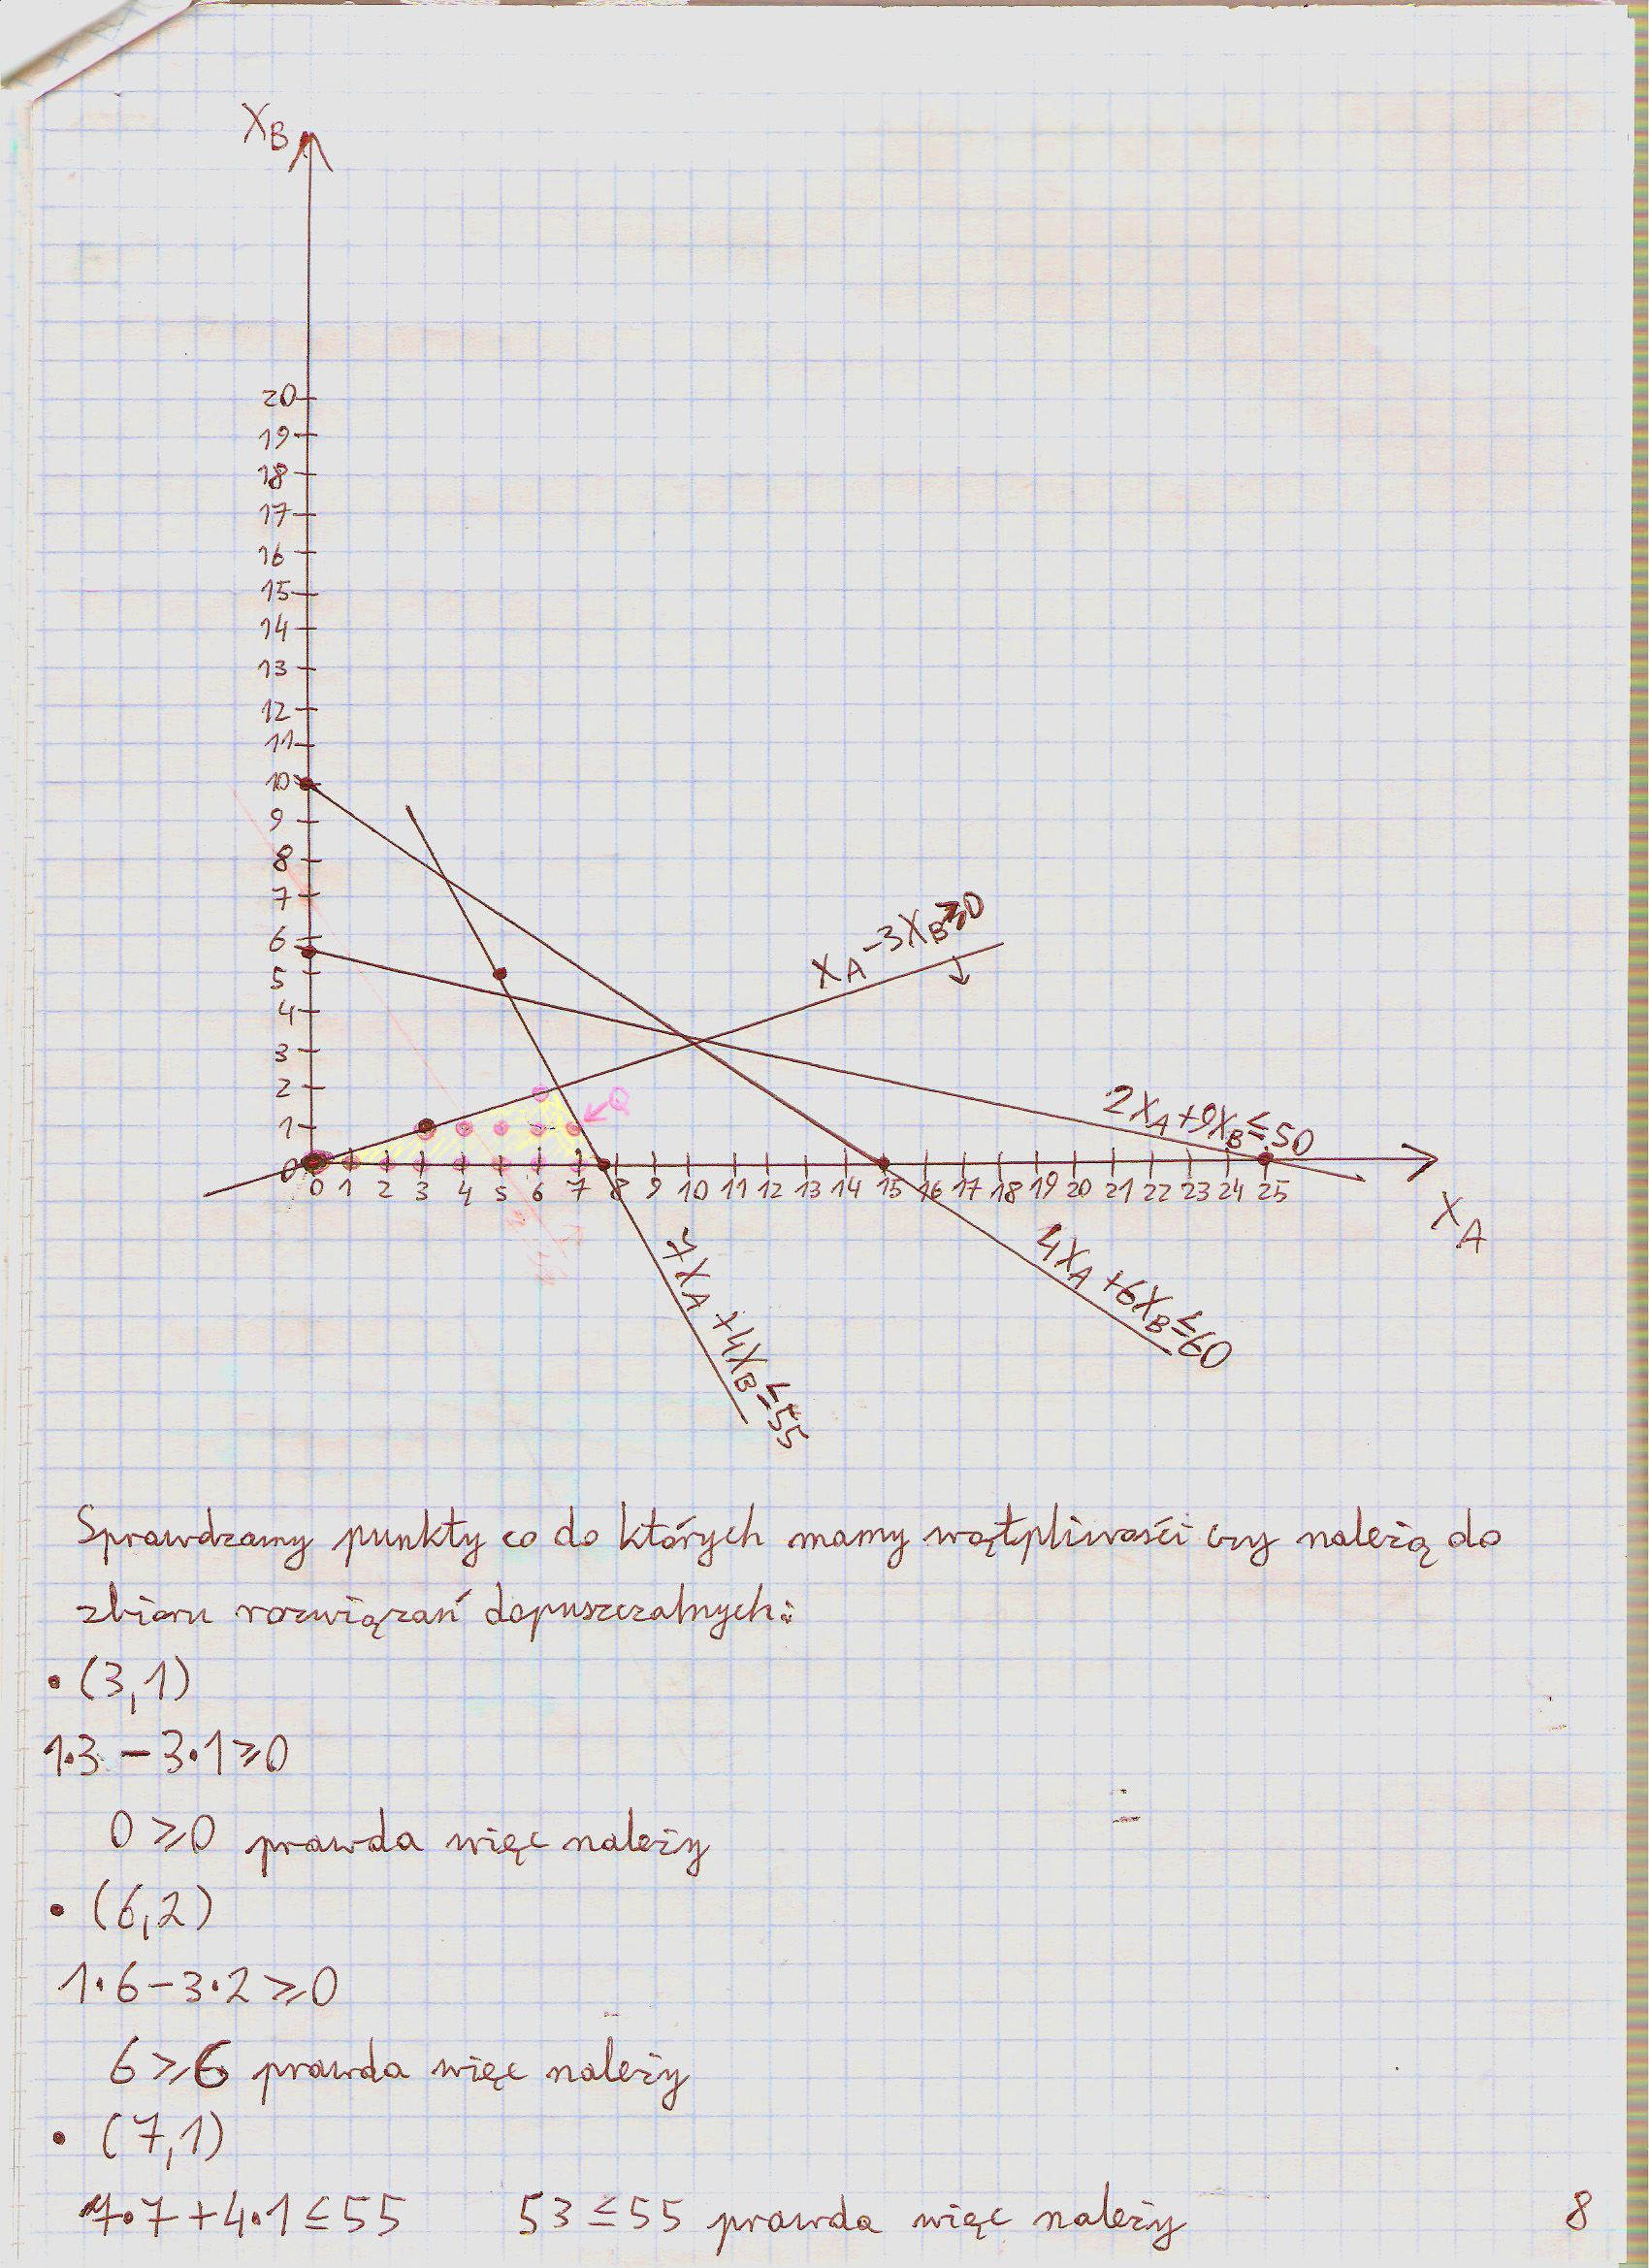 X_B
20
19
18
17
16
15
14
13
12
11
10
9
8
7
6
5
4
3
2
1
0
X_A-3X_B≥0
Q
2X_A+9X_B≤50
0 1 2 3 4 5 6 7 8 9 10 11 12 13 14 15 16 17 18 19 20 21 22 23 24 25
X_A
7X_A+4X_B≤55
4X_A+6X_B≤60
Sprawdzamy punkty co do których mamy wątpliwości czy należą do
zbioru rozwiązań dopuszczalnych:
• (3,1)
1·3 - 3·1≥0
0≥0 prawda więc należy
• (6,2)
1·6-3·2≥0
6≥6 prawda więc należy
• (7,1)
7·7+4·1≤55 53≤55 prawda więc należy
8